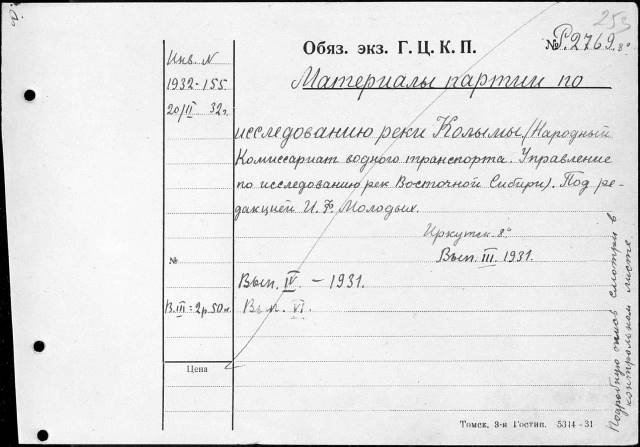 253
Обяз. экз. Г. Ц. К. П.
№ Р.2769. 8°
Инв. N
1932-155
20/II 32 г.
Материалы партии по
исследованию реки Колымы (Народный
Комиссариат водного транспорта. Управление
по исследованию рек Восточной Сибири). Под ре-
дакцией И. Ф. Молодых.
Иркутск. 8°
Вып. III. 1931.
№
Вып. IV. – 1931.
В. III = 2 р. 50 к.
Вып. VI.
Цена
Томск. 3-я Гостип. 5314 - 31
Подробную опись смотри в
контрольном листе.